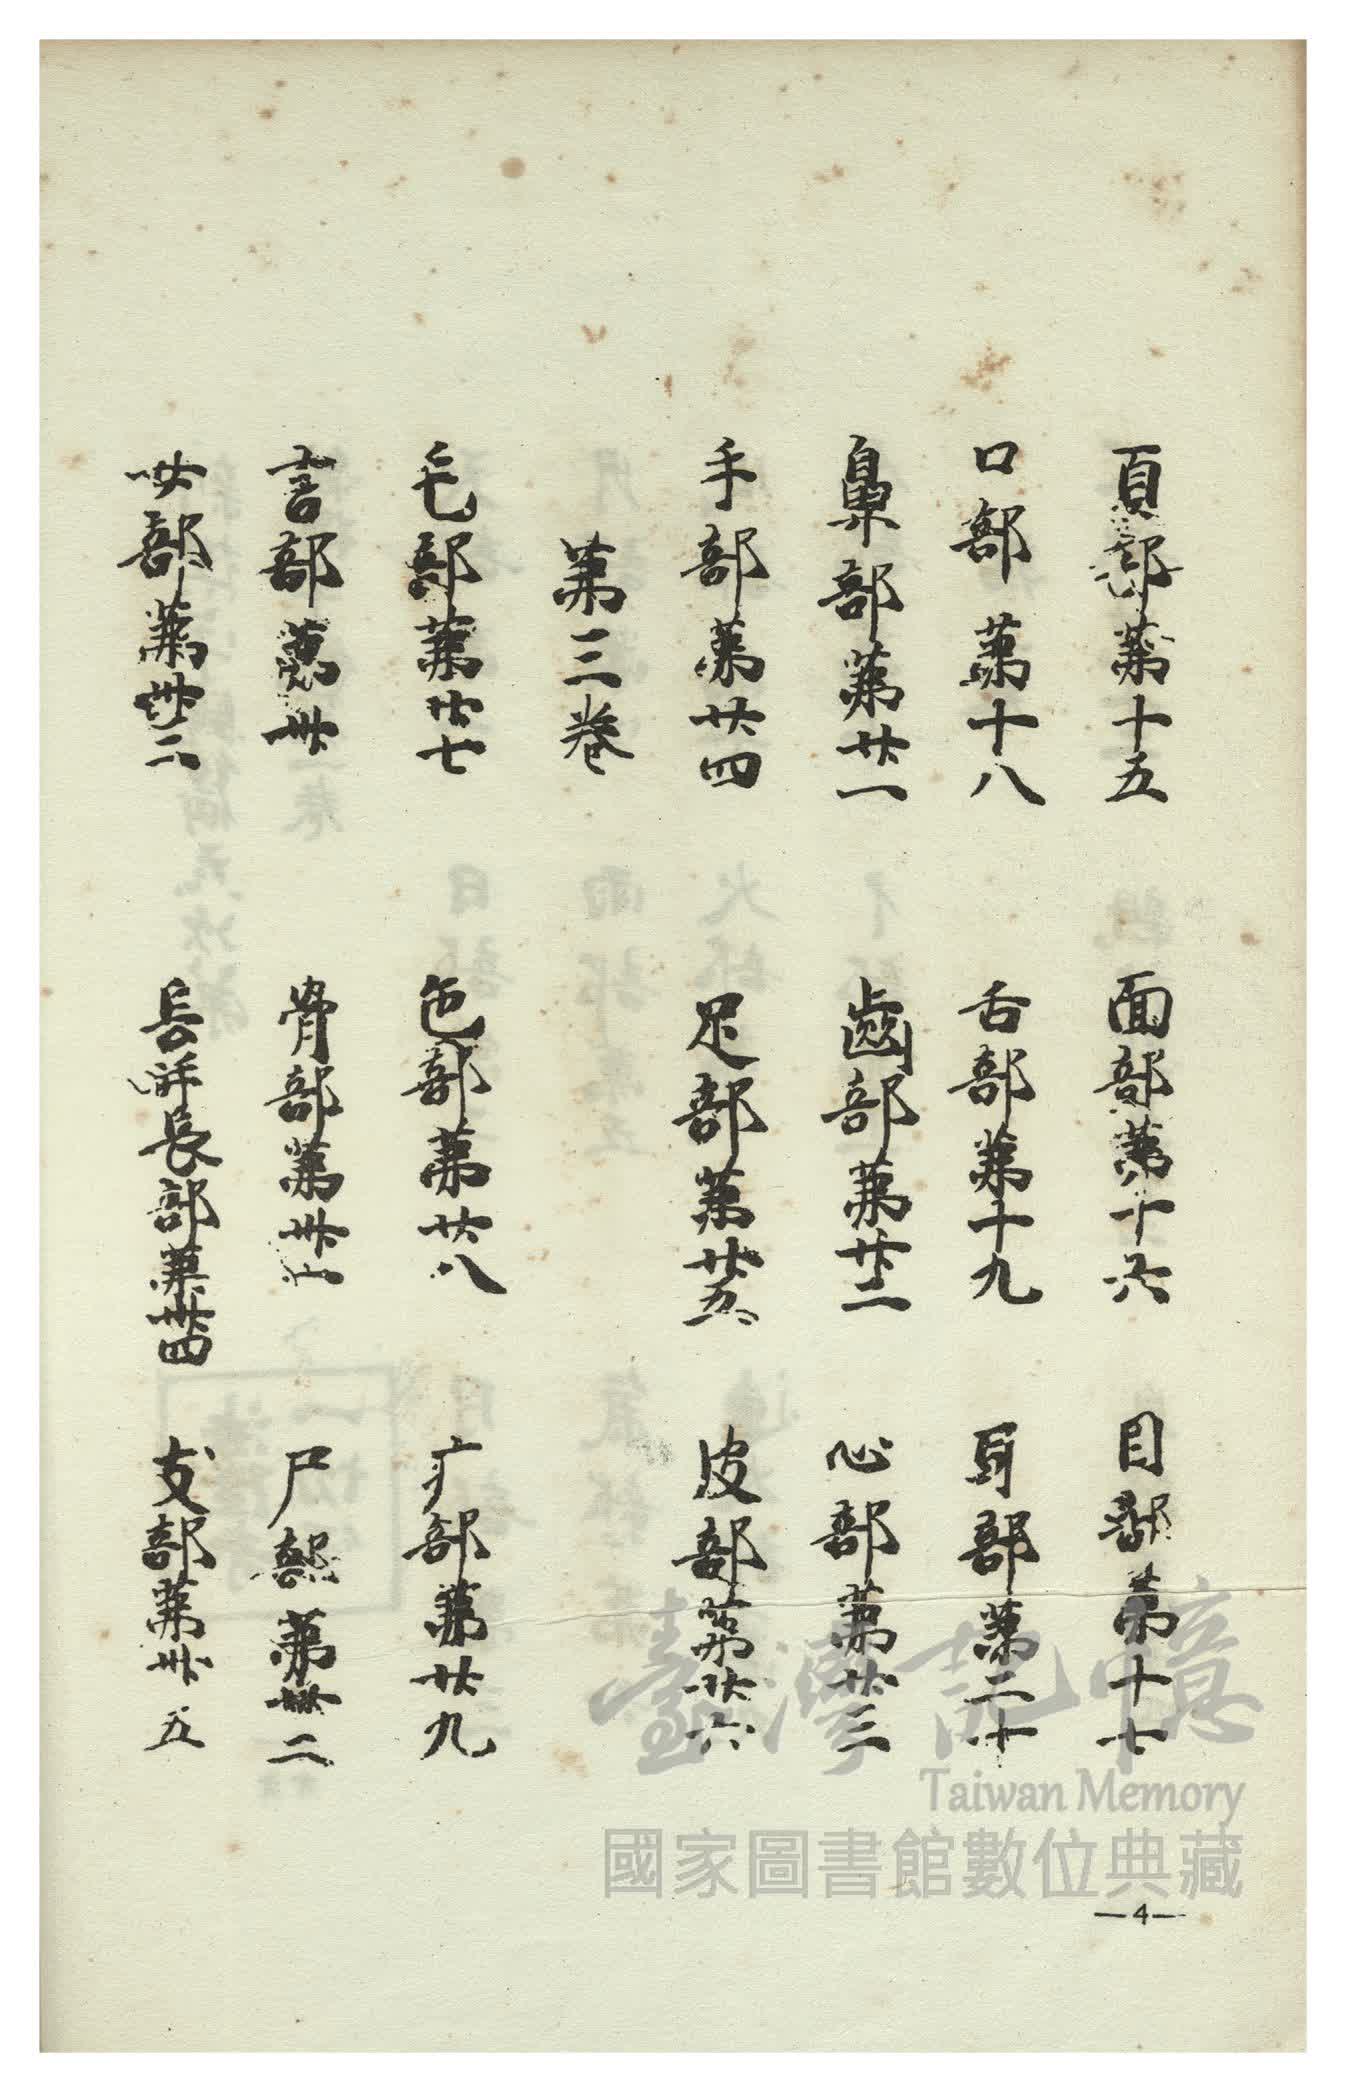 頁部第十五 面部第十六 目部第十七
口部第十八 舌部第十九 耳部第二十
鼻部第廿一 齒部第廿二 心部第廿三
手部第廿四 足部第廿五 皮部第廿六
第三卷
毛部第廿七 色部第廿八 疒部第廿九
言部第卅 骨部第卅一 尸部第卅二
女部第卅三 長部第卅四 支部第卅五
臺灣記憶
Taiwan Memory
國家圖書館數位典藏
—4—